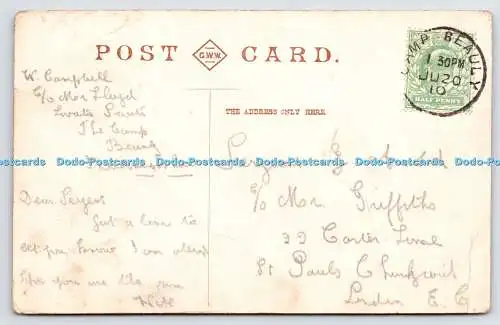 POST CARD.
G.W.W.
CAMP BEAULY
1 30PM
JU 20
10
HALF PENNY
W. Campbell
C/o Mrs Lloyd
The Camp
THE ADDRESS ONLY HERE.
Dodo-Postcards Dodo-Postcards Dodo-Postcards Dodo-Postcards Dodo-Postcards
C/o Mrs Griffiths
33 Carter Lane
St Pauls Churchyard
London E. C.
Dear
Just a line to
let you know I am
you are the